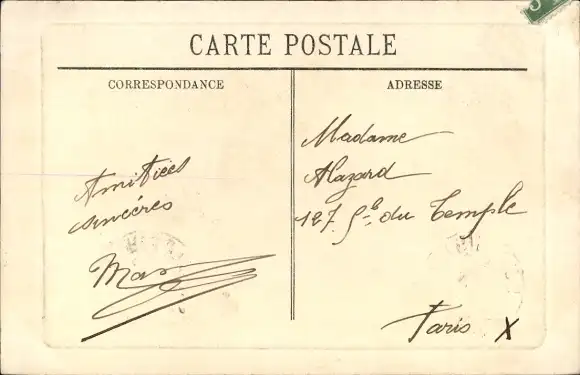 CARTE POSTALE
CORRESPONDANCE
Amitiées
sincères
ADRESSE
Madame
Alazard
127 Fg du Temple
Paris X
5